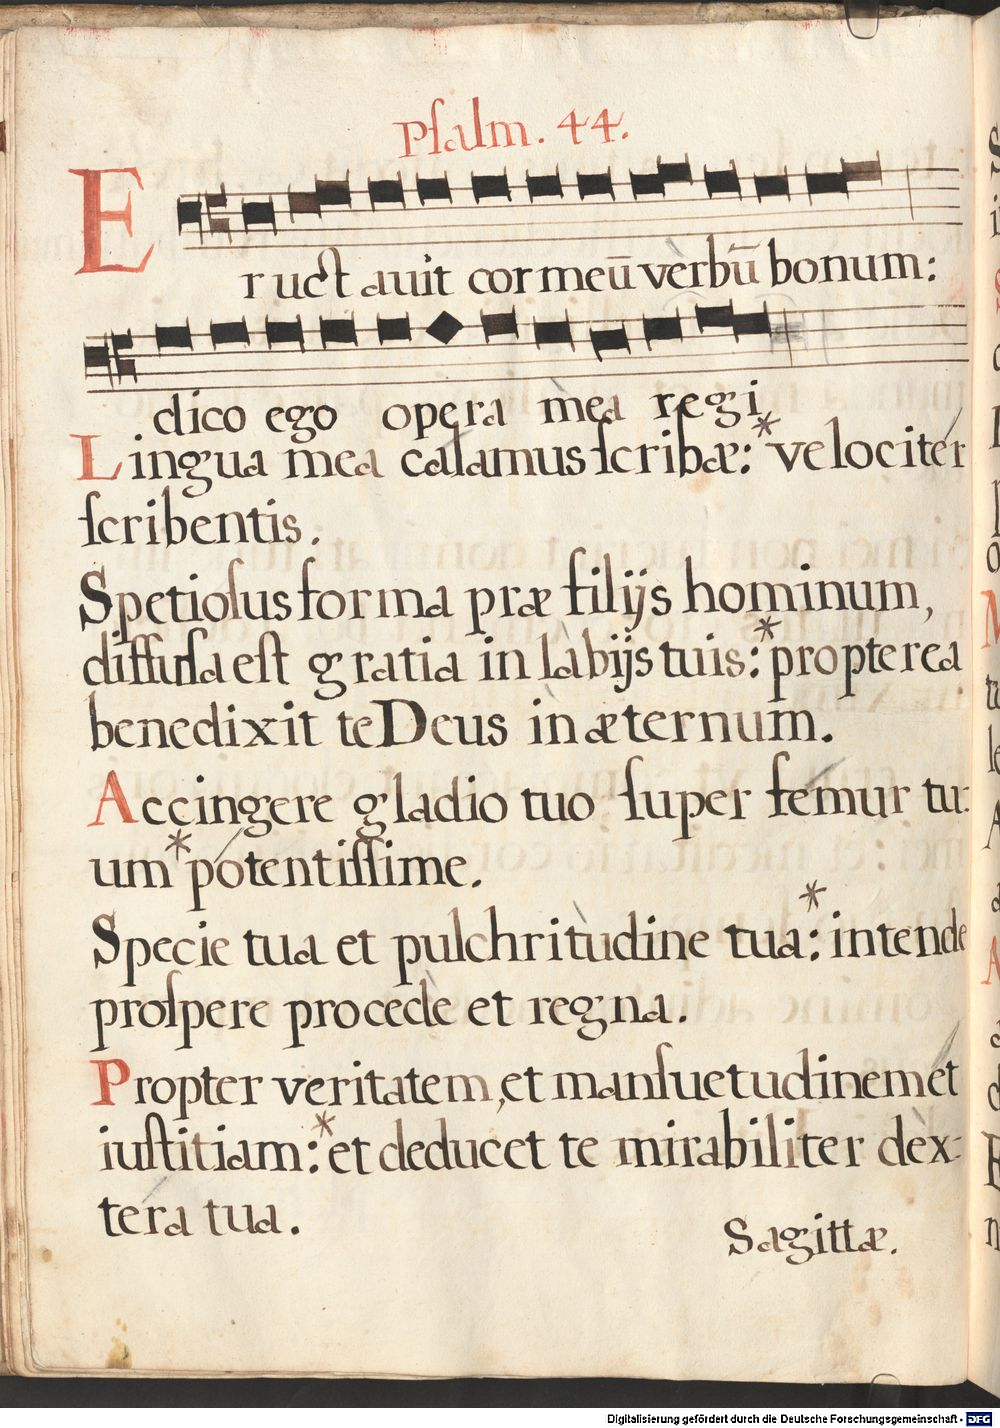 Pſalm. 44.
Eructavit cor meū verbū bonum:
dico ego opera mea regi
Lingua mea calamus ſcribæ: * velociter
ſcribentis.
Spetioſus forma præ filijs hominum,
diffuſa eſt gratia in labijs tuis: * propterea
benedixit te Deus in æternum.
Accingere gladio tuo ſuper femur tu:
um * potentiſſime.
Specie tua et pulchritudine tua: * intende
proſpere procede et regna.
Propter veritatem, et manſuetudinem et
iuſtitiam: * et deducet te mirabiliter dex:
tera tua.
Sagittæ.
Digitalisierung gefördert durch die Deutsche Forschungsgemeinschaft - DFG